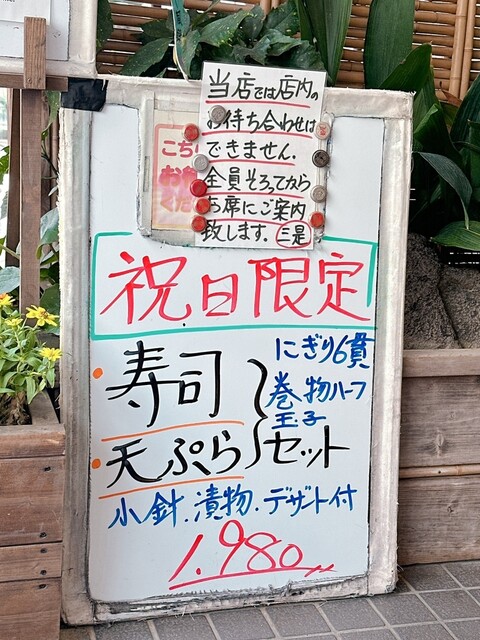 当店では店内の
お待ち合わせは
できません.
全員そろってから
お席にご案内
致します. 三是
こち
祝日限定
・寿司
・天ぷら
にぎり6貫
巻物ハーフ
玉子
セット
小針.漬物.デザート付
1.980